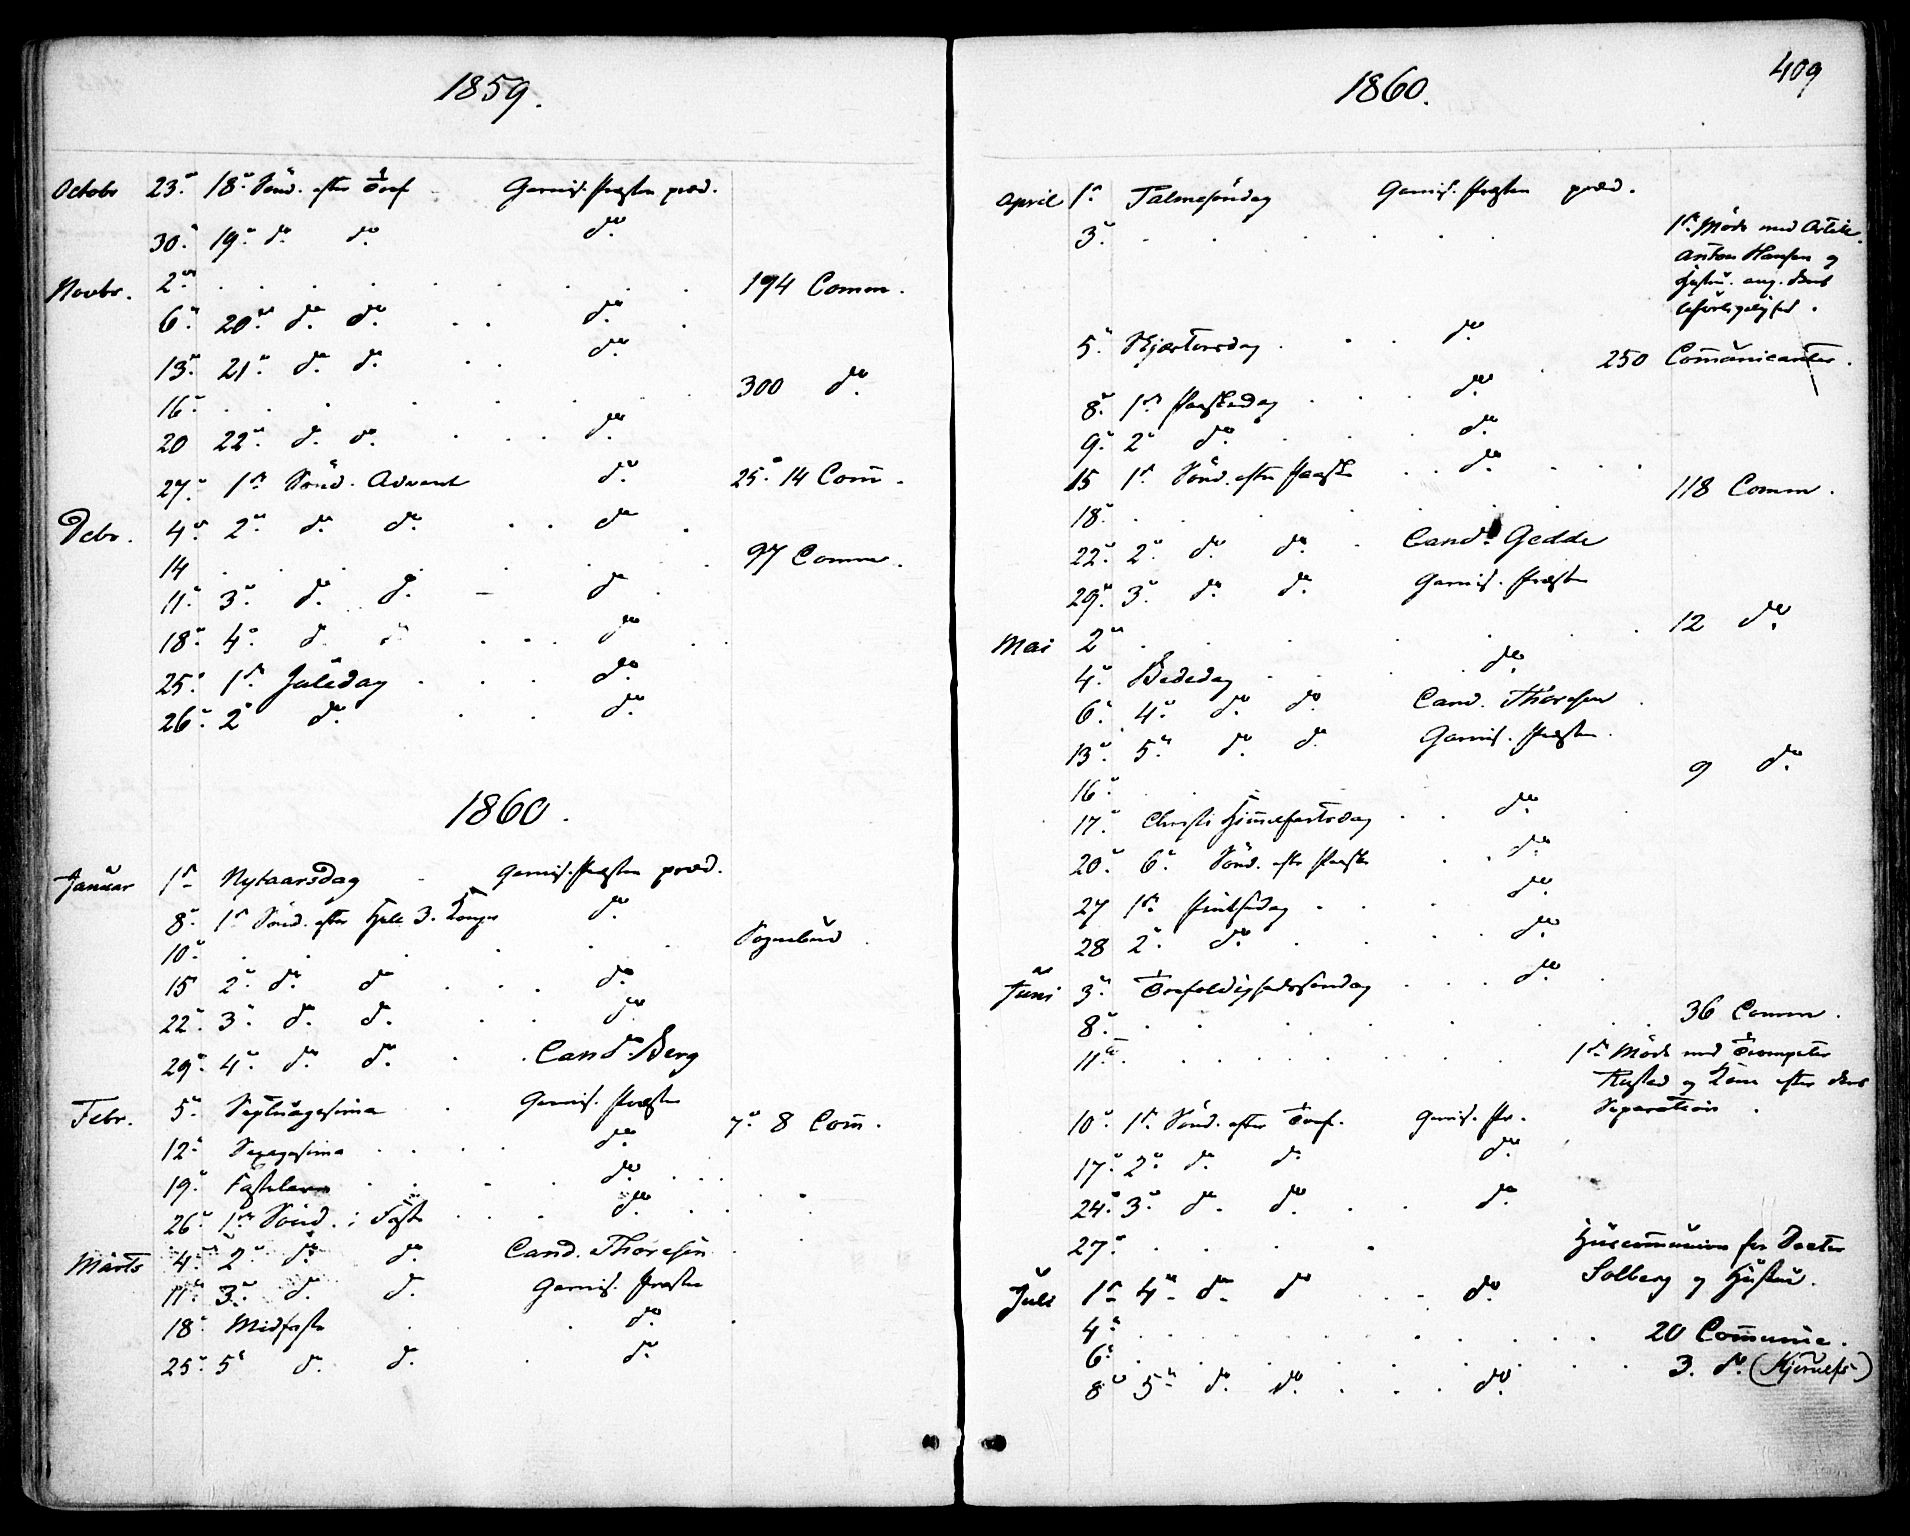 1859.
Octobr 23. 18. Sönd. efter Tref Garnis. Præsten præd.
30. 19. do. do. do.
Novbr. 2. 194 Comm.
6. 20. do. do. do.
13. 21. do. do. do.
16. 300 do.
20 22. do. do. do.
27. 1ste Sönd. Advent do. 25. 14 Com̄.
Decbr. 4. 2. do. do. do
14 97 Comm.
11. 3. do. do. do
18. 4. do. do. do
25. 1ste Juledag do.
26. 2 do. do.
1860.
Januar 1ste Nytaarsdag Garnis. Præsten præd.
8. 1ste Sönd. efter Hell. 3. Konger do.
10. Sognebud
15 2. do. do do
22. 3. do. do. do
29. 4. do. do. Cand. Berg
Febr. 5. Septuagesima Garnis. Præsten 7. 8 Com̄.
12. Sexagesima do.
19. Fastelavn do.
26. 1ste Sönd. i Faste do.
Marts 4. 2. do. do. Cand. Thoresen
11. 3. do. do. Garnis. Præsten
18. Midfaste do.
25. 5 do. do. do.
409
1860.
April 1ste Palmesöndag Garnis. Præsten præd.
3. 1ste Möde med Artill.
Anton Hansen og
Hustru. ang. deres
Uforligelighed.
5. Skjærtorsdag do.
250 Com̄unicanter.
8. 1ste Paaskedag do.
9. 2 do. do.
15 1ste Sönd. efter Paaske do.
18. 118 Comm.
22. 2. do. do. Cand. Gedde
29. 3. do. do. Garnis. Præsten
Mai 2 12 do.
4. Bededag do.
6. 4. do. do. Cand. Thoresen
13. 5. do. do. Garnis. Præsten.
16. 9 do.
17. Christi Him̄elfartsdag do.
20. 6. Sönd. efter Paaske do.
27 1ste Pintsedag do.
28 2. do. do.
Juni 3. Trefoldighedssöndag do.
8. 36 Comm.
11. 1ste Möde med Trompeter
og Kone efter deres
Separation.
10. 1ste Sönd. efter Tref. Garnis. Pr.
17. 2. do. do. do.
24. 3. do. do. do.
27. Huscom̄union for Doctor
Solberg og Hustru.
Juli 1ste 4. do. do do.
4. 20 Com̄unic.
6. 3. do.
8 5. do. do. do.